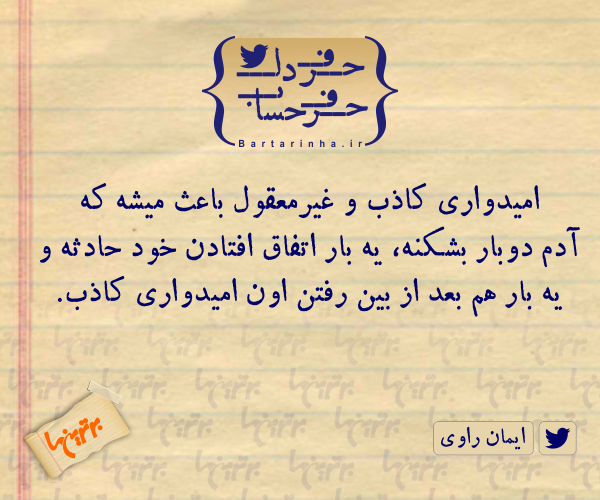 حرف دل
حرف حساب
Bartarinha.ir
امیدواری کاذب و غیرمعقول باعث میشه که
آدم دوبار بشکنه، یه بار اتفاق افتادن خود حادثه و
یه بار هم بعد از بین رفتن اون امیدواری کاذب.
برترین‌ها
ایمان راوی